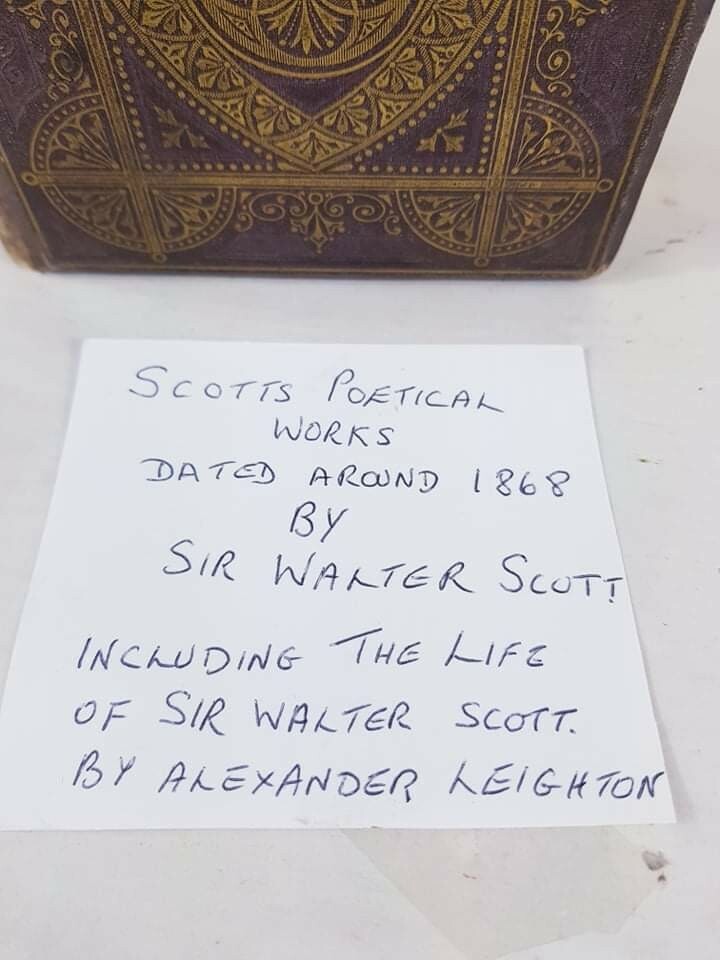 SCOTTS POETICAL
WORKS
DATED AROUND 1868
BY
SIR WALTER SCOTT
INCLUDING THE LIFE
OF SIR WALTER SCOTT.
BY ALEXANDER LEIGHTON